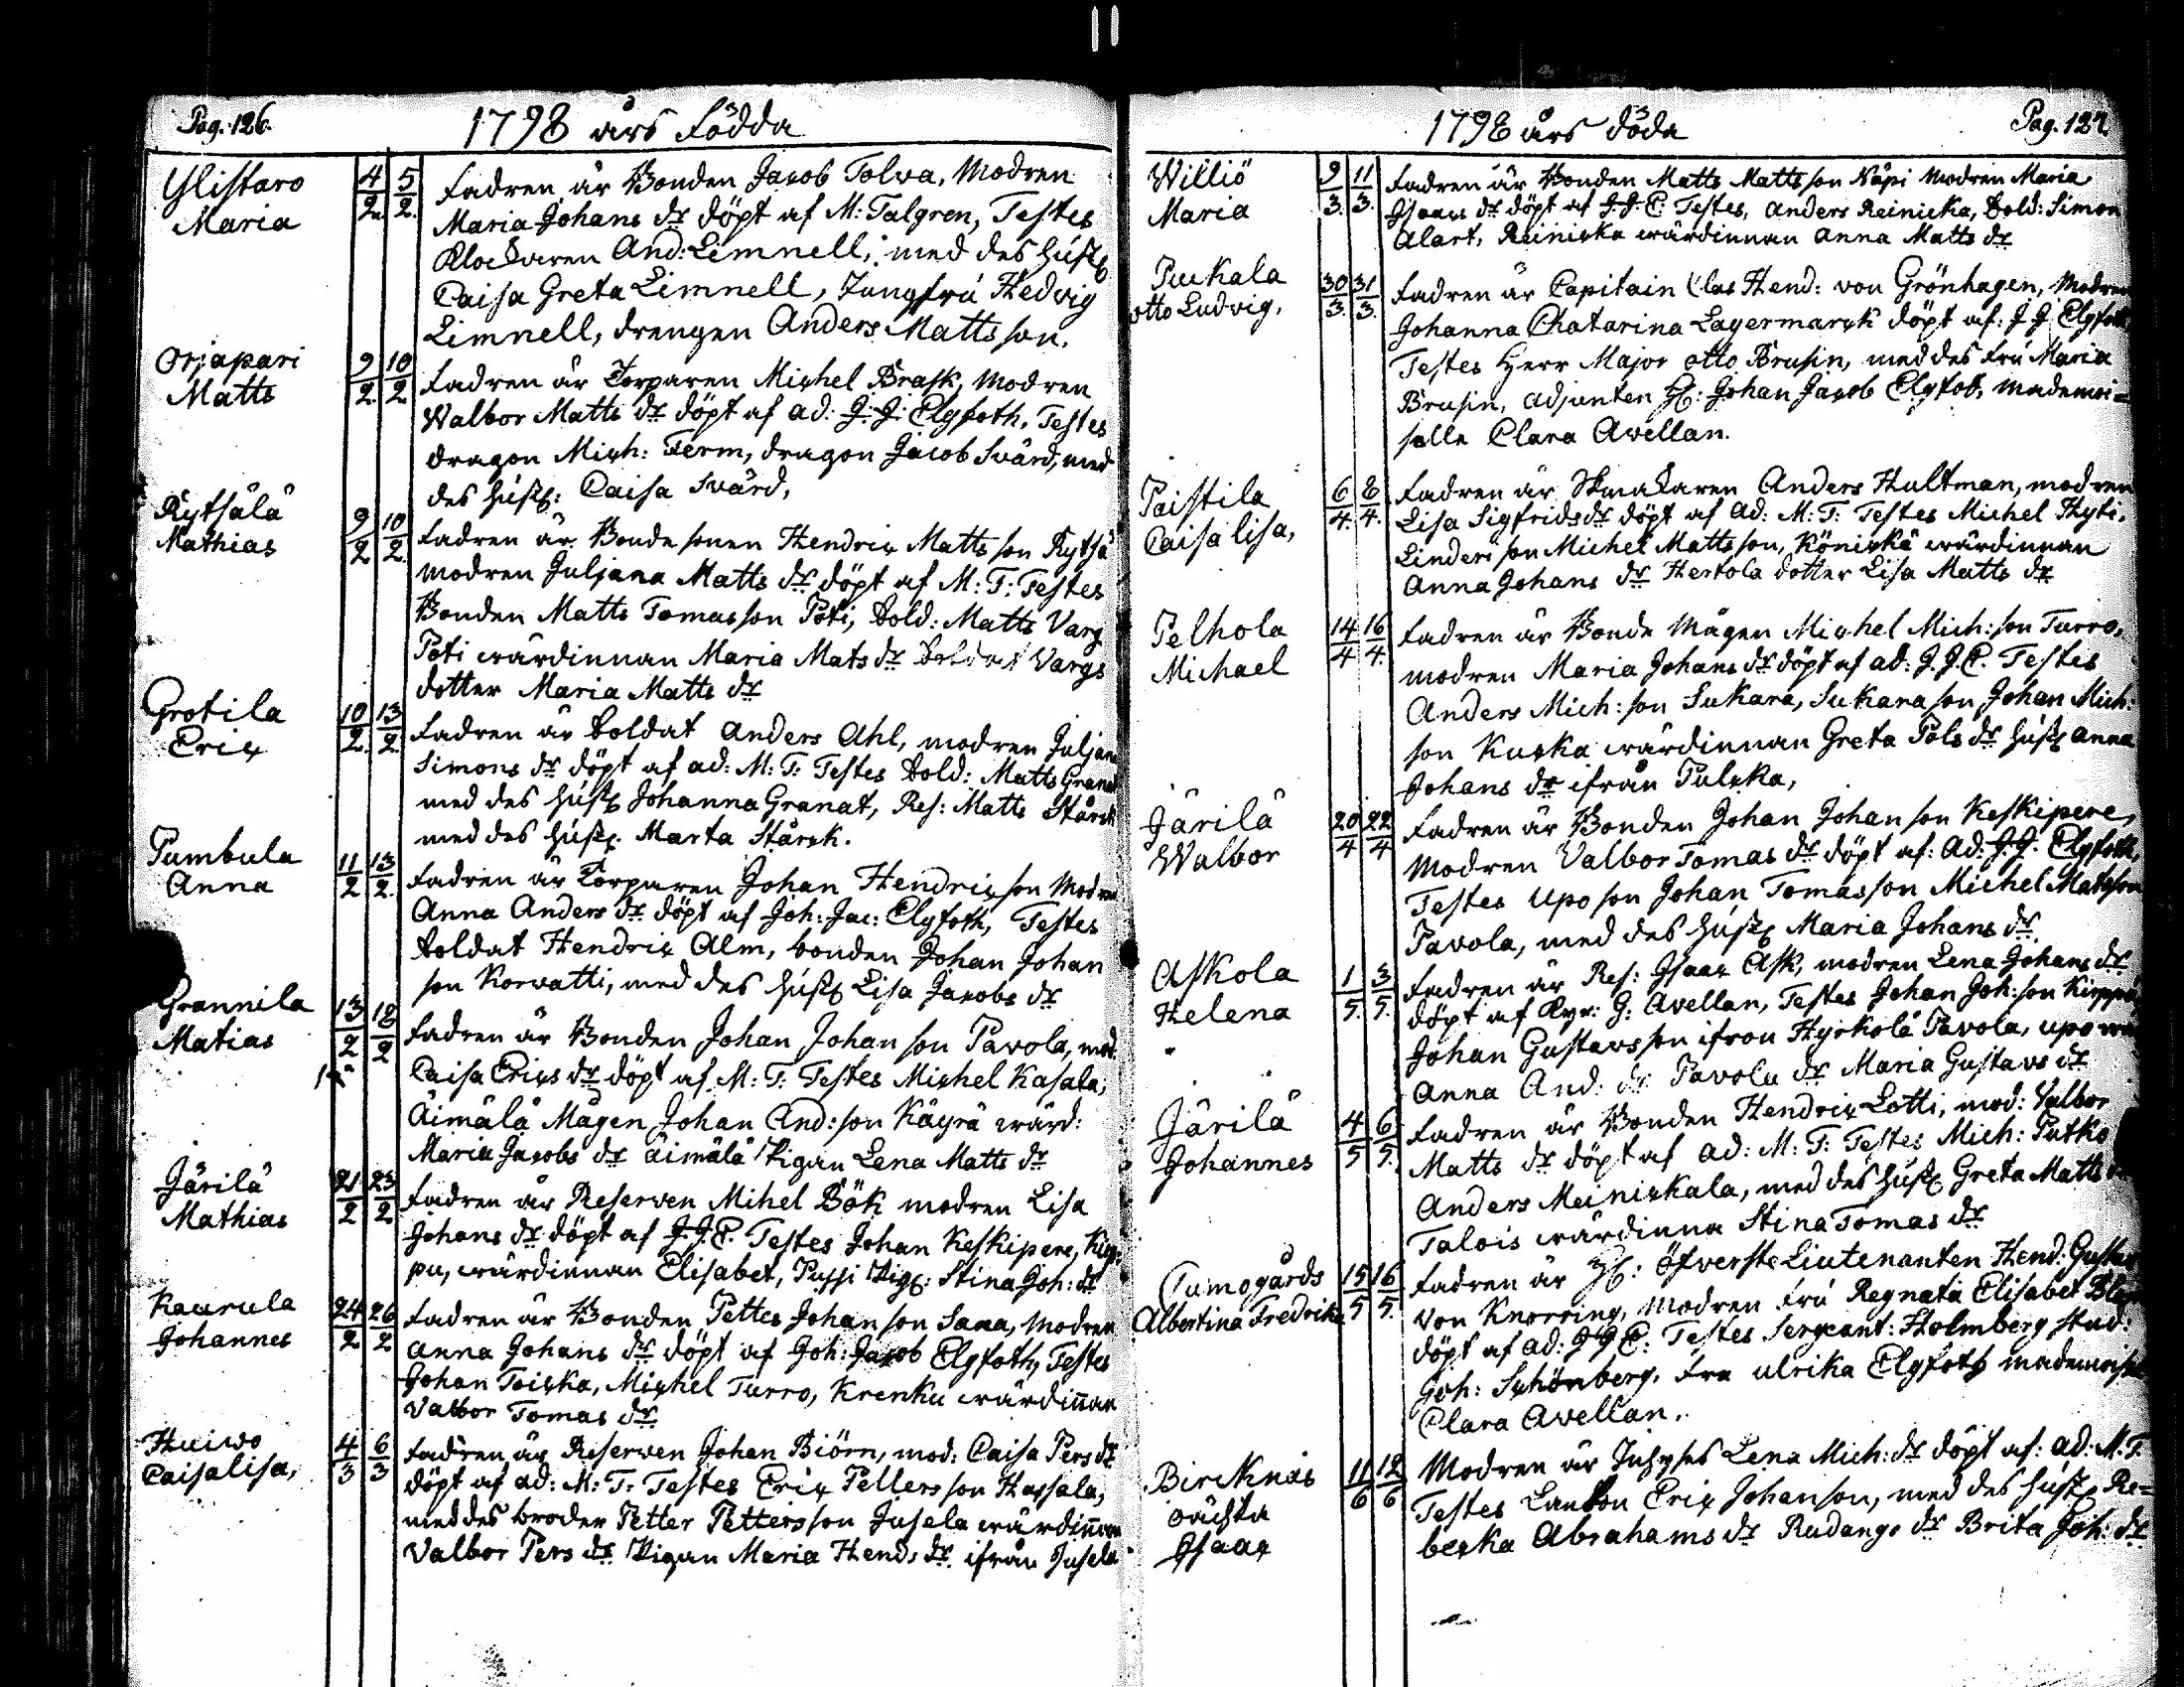 Pag. 126.
1798 års Födda
Ylistaro
Maria
4/2. 5/2.
Fadren är Bonden Jacob Tolva, Modren
Maria Johans dr döpt af M: Talgren, Testes
Klockaren And: Limnell, med des hust
Caisa Greta Limnell, Jungfru Hedvig
Limnell, drengen Anders Matts son.
Orjapari
Matts
9/2. 10/2
Fadren är Torparen Michel Brask, Modren
Walbor Matts dr döpt af ad: J: J: Elgfoth, Testes
dragon Mich: Ferm, dragon Jacob Svärd, med
des hust: Caisa Svärd,
Rytsälä
Mathias
9/2 10/2.
Fadren är Bonde sonen Hendric Matts son Rytsä
modren Juljana Matts dr döpt af M: T: Testes
Bonden Matts Tomas son Poti, Sold: Matts Varg
Poti wärdinnan Maria Mats dr Soldat Vargs
dotter Maria Matts dr
Grotila
Eric
10/2. 13/2.
Fadren är Soldat Anders Ahl, modren Juljana
Simons dr döpt af ad: M: T: Testes Sold: Matts Granat
med des hust Johanna Granat, Res: Matts Stårck
med des hust. Marta Stårck.
Pumbula
Anna
11/2 13/2.
Fadren är Torparen Johan Hendric son Modren
Anna Anders dr döpt af Joh: Jac: Elgfoth, Testes
Soldat Hendric Alm, bonden Johan Johan
son Korvatti, med des hust Lisa Jacobs dr
Grannila
Matias
13/2 18/2
Fadren är Bonden Johan Johan son Pavola, mod
Caisa Erics dr döpt af M: T: Testes Michel Kasala,
Äimälä Mågen Johan And: son Käyrä wärd:
Maria Jacobs dr äimälä Pigan Lena Matts dr
Järilä
Mathias
21/2 23/2
Fadren är Reserven Mihel Bök modren Lisa
Johans dr döpt af J. J. E. Testes Johan Keskipere, Kip
pu, wärdinnan Elisabet, Pussi Pig: Stina Joh: dr
Kaurula
Johannes
24/2 26/2
Fadren är Bonden Petter Johan son Sana, Modren
Anna Johans dr döpt af Joh: Jacob Elgfoth, Testes
Johan Toicka, Michel Turro, Krenku wärdinnan
Valbor Tomas dr
Huiwo
Caisalisa,
4/3 6/3
Fadren är Reserven Johan Biörn, mod: Caisa Pers dr
döpt af ad: M: T: Testes Eric Pellers son Hassala,
med des broder Petter Petters son Jusela wärdinnan
Valbor Pers dr Pigan Maria Hend: dr ifrån Jusela
Pag. 127
1798 års döda
Williö
Maria
9/3. 11/3.
Fadren är Bonden Matts Matts son Näpi Modren Maria
Isaacs dr döpt af J. J. E. Testes, Anders Reinicka, Sold: Simon
Alart, Reinicka wärdinnan Anna Matts dr
Purkala
otto Ludvig,
30/3. 31/3.
Fadren är Capitain Clas Hend: von Grönhagen, Modren
Johanna Chatarina Lagermarck döpt af: J. J. Elgfoth
Testes Herr Major otto Brusin, med des Fru Maria
Brusin, adjunten H: Johan Jacob Elgfot, mademoi=
selle Clara Avellan.
Paistila
Caisa lisa,
6/4. 8/4.
Fadren är Skradaren Anders Hultman, modren
Lisa Sigfrids dr döpt af Ad: M: T: Testes Michel Hyti.
Linderi son Michel Matts son, Könickä wärdinnan
Anna Johans dr Hertola dotter Lisa Matts dr
Pelhola
Michael
14/4 16/4.
Fadren är Bonde Mågen Michel Mich: son Turro,
modren Maria Johans dr döpt af ad: J. J. E. Testes
Anders Mich: son Sukara, Sukara son Johan Mich:
son Kucka wärdinnan Greta Pols dr hust Anna
Johans dr ifrån Pulcka,
Järilä
Walbor
20/4 22/4
Fadren är Bonden Johan Johan son Keskipere,
Modren Valbor Tomas dr döpt af: Ad: J. J. Elgfoth,
Testes Upo son Johan Tomas son Michel Mats son
Pavola, med des hust Maria Johans dr.
Askola
Helena
1/5. 3/5.
Fadren är Res: Isaac Ask, modren Lena Johans dr
döpt af Kyr: G: Avellan, Testes Johan Joh: son Kirppu
Johan Gustavs son ifron Hyrkölä Pavola, upo
Anna And: dr Pavola dr Maria Gustavs dr
Järilä
Johannes
4/5 6/5.
Fadren är Bonden Hendric Lotti, mod: Valbor
Matts dr döpt af ad: M: T: Testes Mich: Putko
Anders Muinickala, med des hust Greta Matts
Talois wärdinna Stina Tomas dr
Tumogårds
Albertina Fredrika
15/5 16/5.
Fadren är H: öfverste Liutenanten Hend: Gustav
von Knorring, Modren Fru Regnata Elisabet
döpt af ad: J J E: Testes Sergeant: Holmberg stud:
Joh: Schönberg. Fru ulrika Elgfoth mademoisel
Clara Avellan.
Bircknäs
oächta
Isaac
11/6 12/6
Modren är Inhyses Lena Mich: dr döpt af: ad: M: T:
Testes Lanbon Eric Johanson, med des hust Re=
becka Abrahams dr Rudango dr Brita Joh: dr